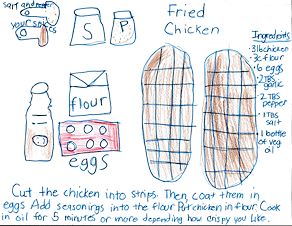 Fried
Chicken
your spices
S
P
flour
eggs
Ingredients
·3lb chicken
·3c flour
·6 eggs
·2 TBS
garlic
·2 TBS
pepper
·1 TBS
salt
·1 bottle
of veg
oil
Cut the chicken into strips. Then coat them in
eggs Add seasonings into the flour Put chicken in flour. Cook
in oil for 5 minutes or more depending how crispy you like.